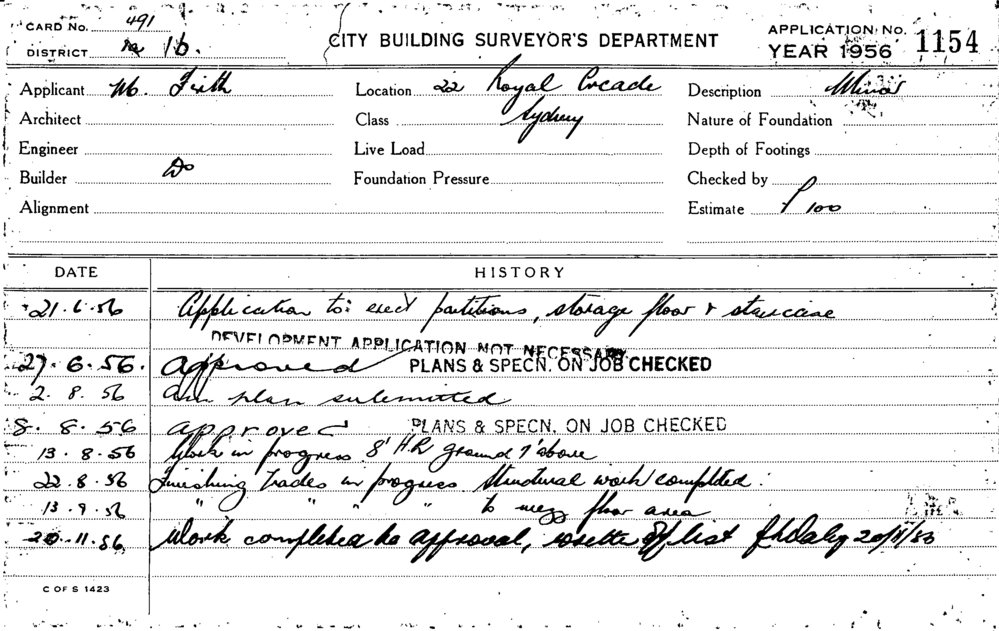 CARD No. 491
DISTRICT 1a 1b.
CITY BUILDING SURVEYOR'S DEPARTMENT
APPLICATION No. 1154
YEAR 1956
Applicant M. Firth
Location 22 Royal Arcade
Sydney
Description Minor
Architect
Class
Nature of Foundation
Engineer
Live Load
Depth of Footings
Builder Do
Foundation Pressure
Checked by
Alignment
Estimate £100
DATE HISTORY
21.6.56 Application to: erect partitions, storage floor & staircase
DEVELOPMENT APPLICATION NOT NECESSARY
27.6.56. Approved PLANS & SPECN. ON JOB CHECKED
2.8.56 Am plan submitted
8.8.56 approved PLANS & SPECN. ON JOB CHECKED
13.8.56 Work in progress 8' HR ground 7' above
22.8.56 Finishing trades in progress Structural work completed.
13.9.56 " " " " to mezz floor area
20.11.56 Work completed to approval, list 20/11/56
C OF S 1423